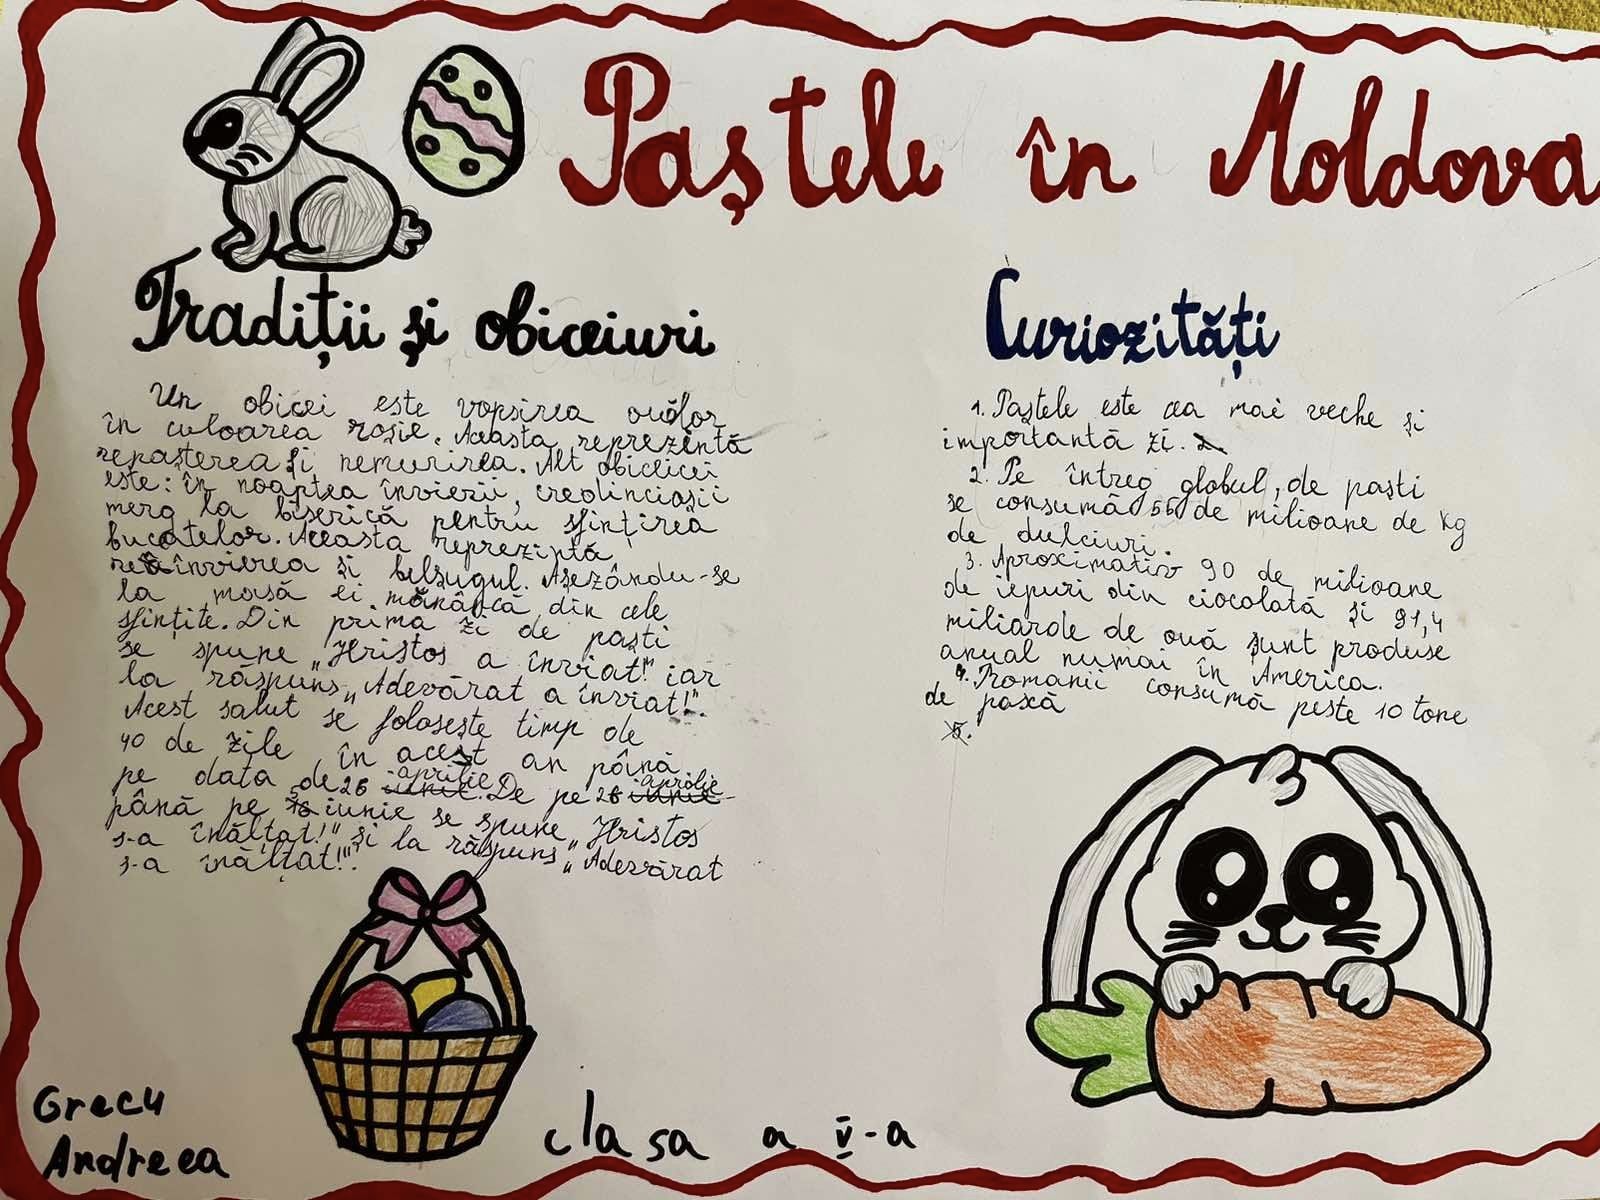 Paștele în Moldova
Tradiții și obiceiuri
Un obicei este vopsirea ouălor
în culoarea roșie. Aceasta reprezintă
renașterea și nemurirea. Alt obiceicei
este: în noaptea învierii, credincioșii
merg la biserică pentru sfințirea
bucatelor. Aceasta reprezintă
reînvierea și belșugul. Așezându-se
la masă ei mănâncă din cele
sfințite. Din prima zi de paști
se spune „Hristos a înviat!" iar
la răspuns „Adevărat a înviat!".
Acest salut se folosește timp de
40 de zile în acest an până
pe data de 26 aprilie. De pe 26 aprilie
până pe iunie se spune „Hristos
s-a înălțat!" și la răspuns „Adevărat
s-a înălțat!".
Curiozități
1. Paștele este cea mai veche și
importantă zi.
2. Pe întreg globul, de paști
se consumă de milioane de kg
de dulciuri.
3. Aproximativ 90 de milioane
de iepuri din ciocolată și 91,4
miliarde de ouă sunt produse
anual numai în America.
4. Romanii consumă peste 10 tone
de pască
5.
Grecu
Andreea
clasa a V-a